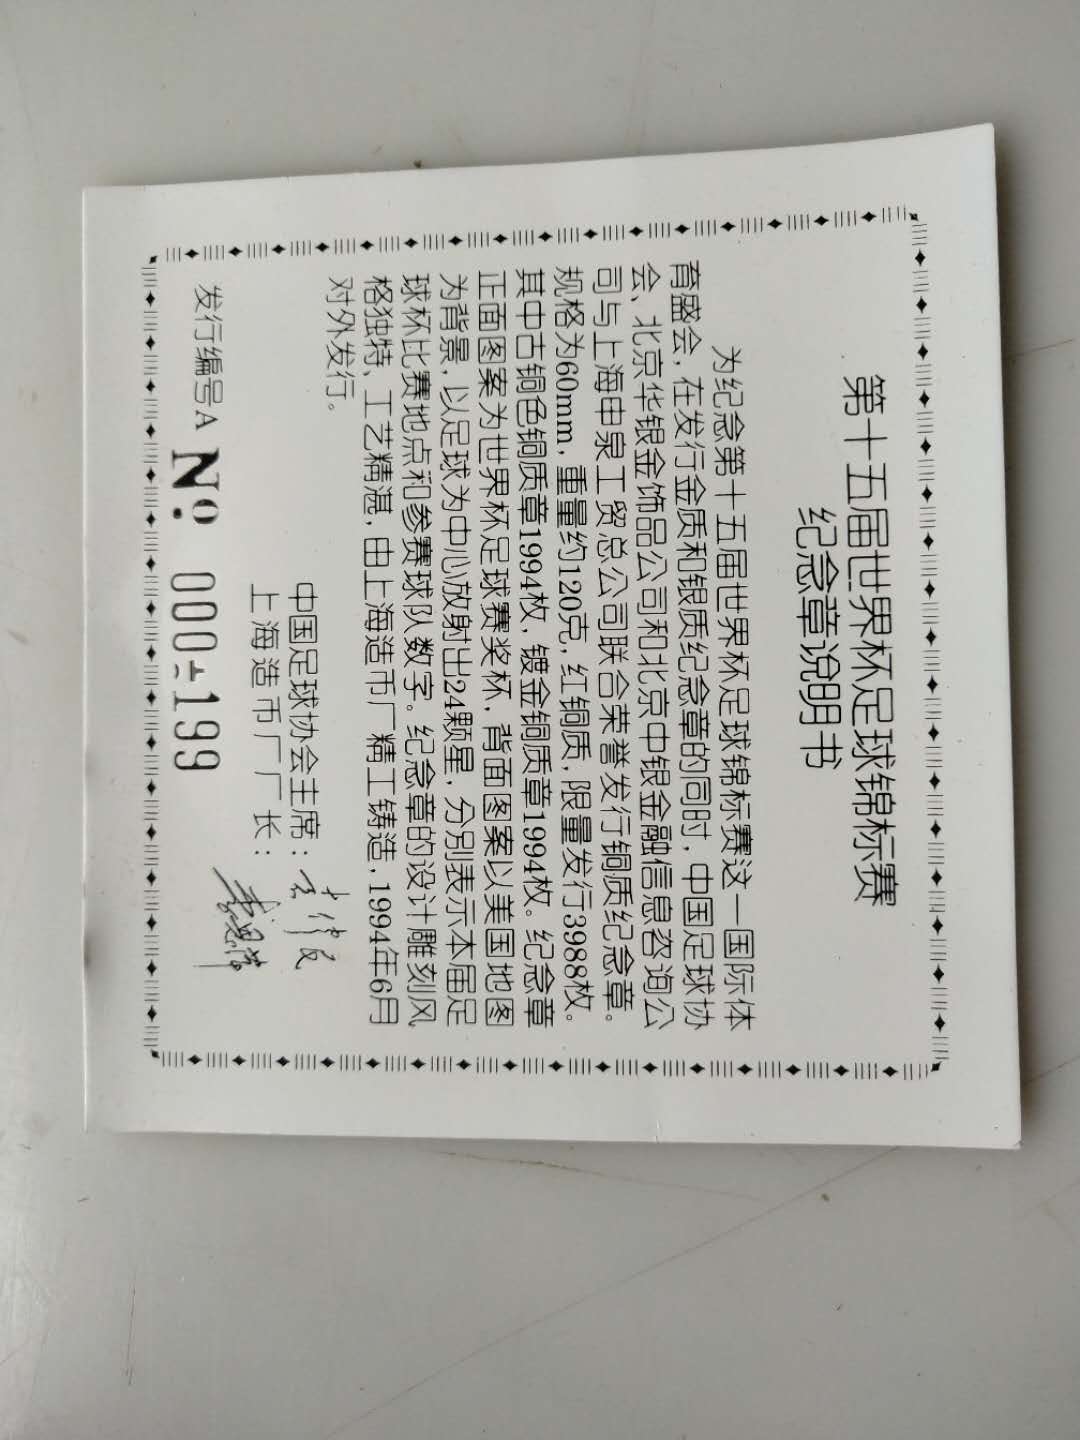 第十五届世界杯足球锦标赛
纪念章说明书
为纪念第十五届世界杯足球锦标赛这一国际体
育盛会，在发行金质和银质纪念章的同时，中国足球协
会、北京华银金饰品公司和北京中银金融信息咨询公
司与上海申泉工贸总公司联合荣誉发行铜质纪念章。
规格为60mm，重量约120克，红铜质，限量发行3988枚。
其中古铜色铜质章1994枚，镀金铜质章1994枚。纪念章
正面图案为世界杯足球赛奖杯，背面图案以美国地图
为背景，以足球为中心放射出24颗星，分别表示本届足
球杯比赛地点和参赛球队数字。纪念章的设计雕刻风
格独特、工艺精湛，由上海造币厂精工铸造，1994年6月
对外发行。
中国足球协会主席：
上海造币厂厂长：
发行编号A № 000199